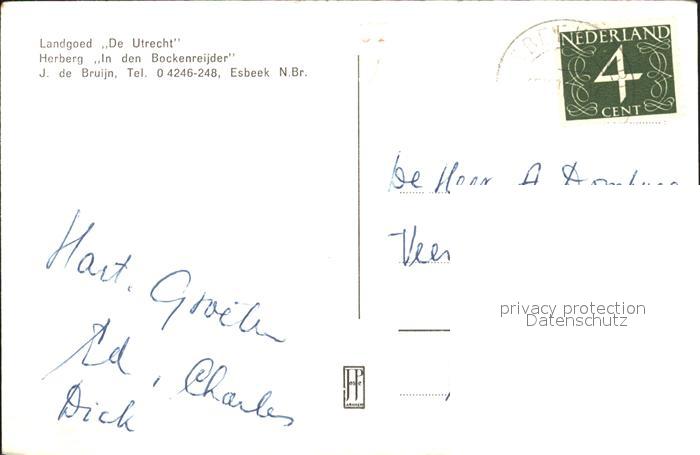 Landgoed „De Utrecht"
Herberg „In den Bockenreijder"
J. de Bruijn, Tel. 0 4246-248, Esbeek N.Br.
NEDERLAND
4
CENT
De Heer A
Veer
Hart. Groeten
Ed, Charles
Dick
privacy protection
Datenschutz